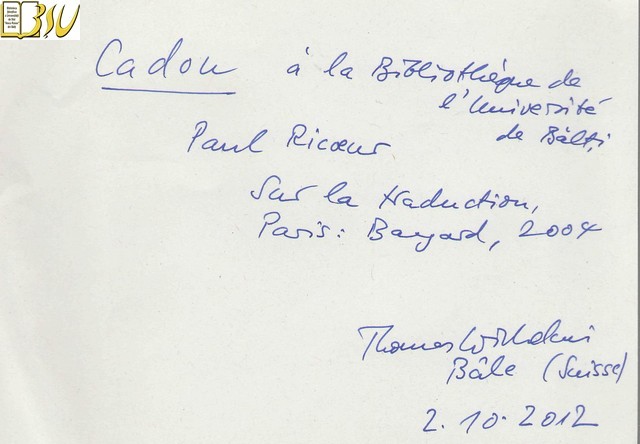 BSU
Cadou à la Bibliothèque de
l'Université
de Bălți
Paul Ricœur
Sur la traduction,
Paris: Bayard, 2004
Thomas Wilhelmi
Bâle (Suisse)
2.10.2012